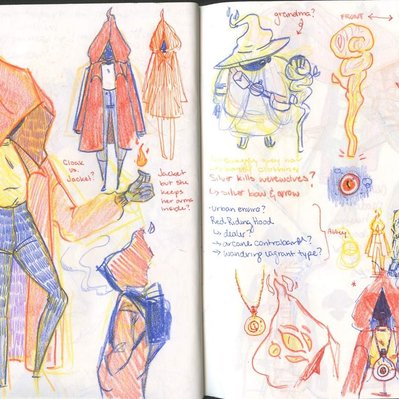 Cloak
vs.
Jacket?
Jacket
but she
keeps
her arms
inside?
grandma?
FRONT
Silver kills werewolves?
→ silver bow & arrow
urban enviro?
Red Riding Hood
→ dealer?
→ arcane contraband?
→ wandering vagrant type?